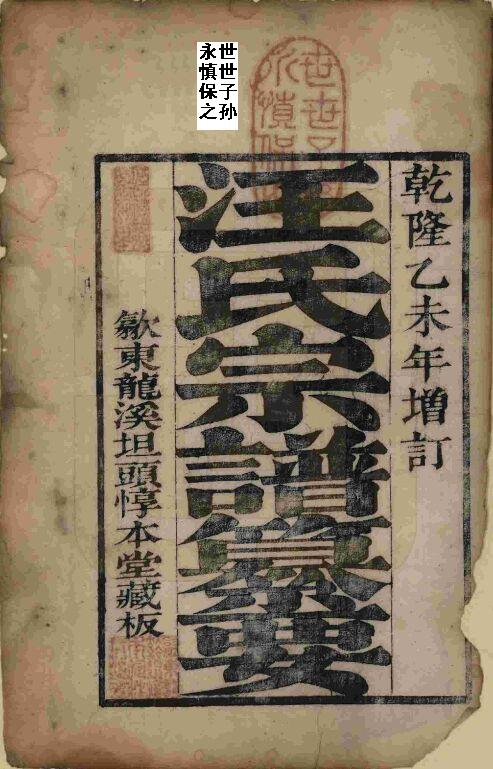 世世子孙
永慎保之
乾隆乙未年增訂
汪氏宗譜纂要
歙東龍溪坦頭惇本堂藏板